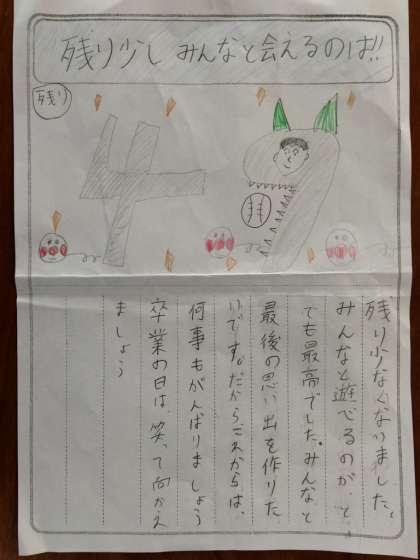 残り少し みんなと会えるのは!!
残り
49
残り少なくなりました。
みんなと遊べるのが、と
ても最高でした。みんなと
最後の思い出を作りた
いです。だからこれからは、
何事もがんばりましょう
卒業の日は、笑って向かえ
ましょう